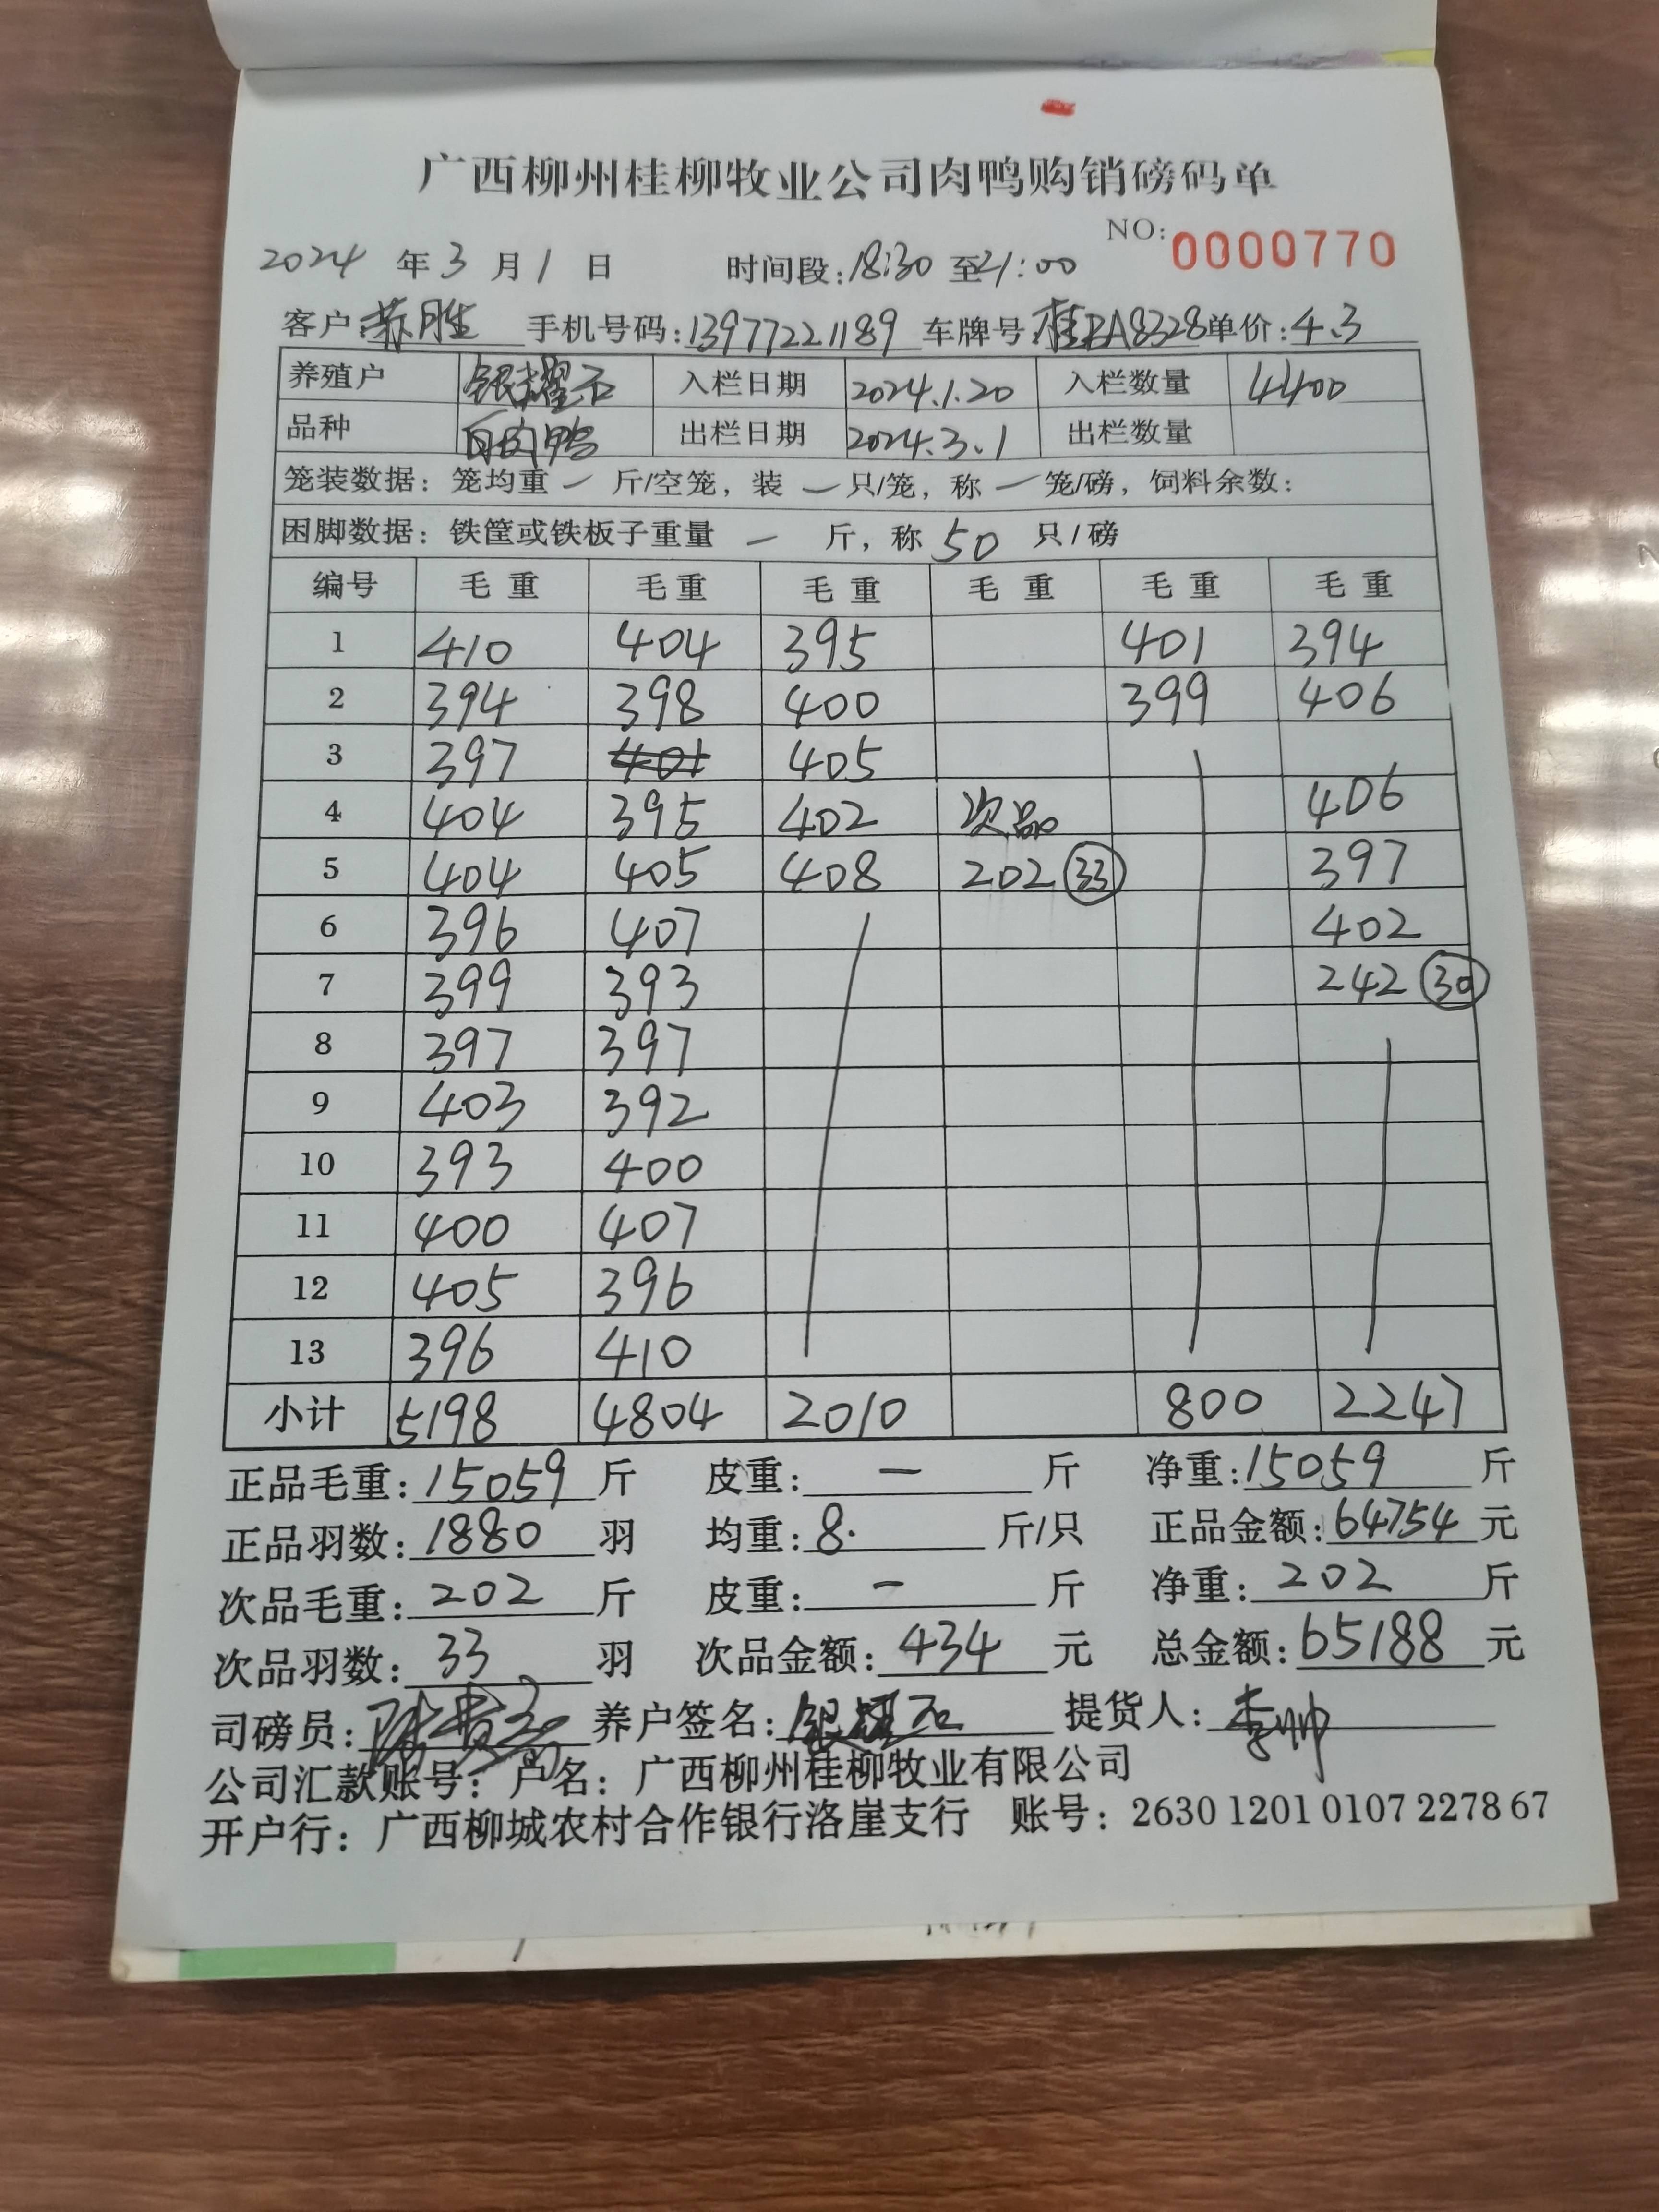 广西柳州桂柳牧业公司肉鸭购销磅码单
NO: 0000770
2024 年 3 月 1 日 时间段: 18:30 至 21:00
客户: 苏胜 手机号码: 13977221189 车牌号: 桂BA8328 单价: 4.3
养殖户 银耀石 入栏日期 2024.1.20 入栏数量 4400
品种 白肉鸭 出栏日期 2024.3.1 出栏数量
笼装数据: 笼均重 — 斤/空笼, 装 — 只/笼, 称 — 笼/磅, 饲料余数:
困脚数据: 铁筐或铁板子重量 — 斤, 称 50 只/磅
编号 毛重 毛重 毛重 毛重 毛重 毛重
1 410 404 395 401 394
2 394 398 400 399 406
3 397 401 405
4 404 395 402 次品 406
5 404 405 408 202 33 397
6 396 407 402
7 399 393 242 30
8 397 397
9 403 392
10 393 400
11 400 407
12 405 396
13 396 410
小计 5198 4804 2010 800 2247
正品毛重: 15059 斤 皮重: — 斤 净重: 15059 斤
正品羽数: 1880 羽 均重: 8. 斤/只 正品金额: 64754 元
次品毛重: 202 斤 皮重: — 斤 净重: 202 斤
次品羽数: 33 羽 次品金额: 434 元 总金额: 65188 元
司磅员: 养户签名: 银耀石 提货人: 李帅
公司汇款账号: 户名: 广西柳州桂柳牧业有限公司
开户行: 广西柳城农村合作银行洛崖支行 账号: 2630 1201 0107 2278 67